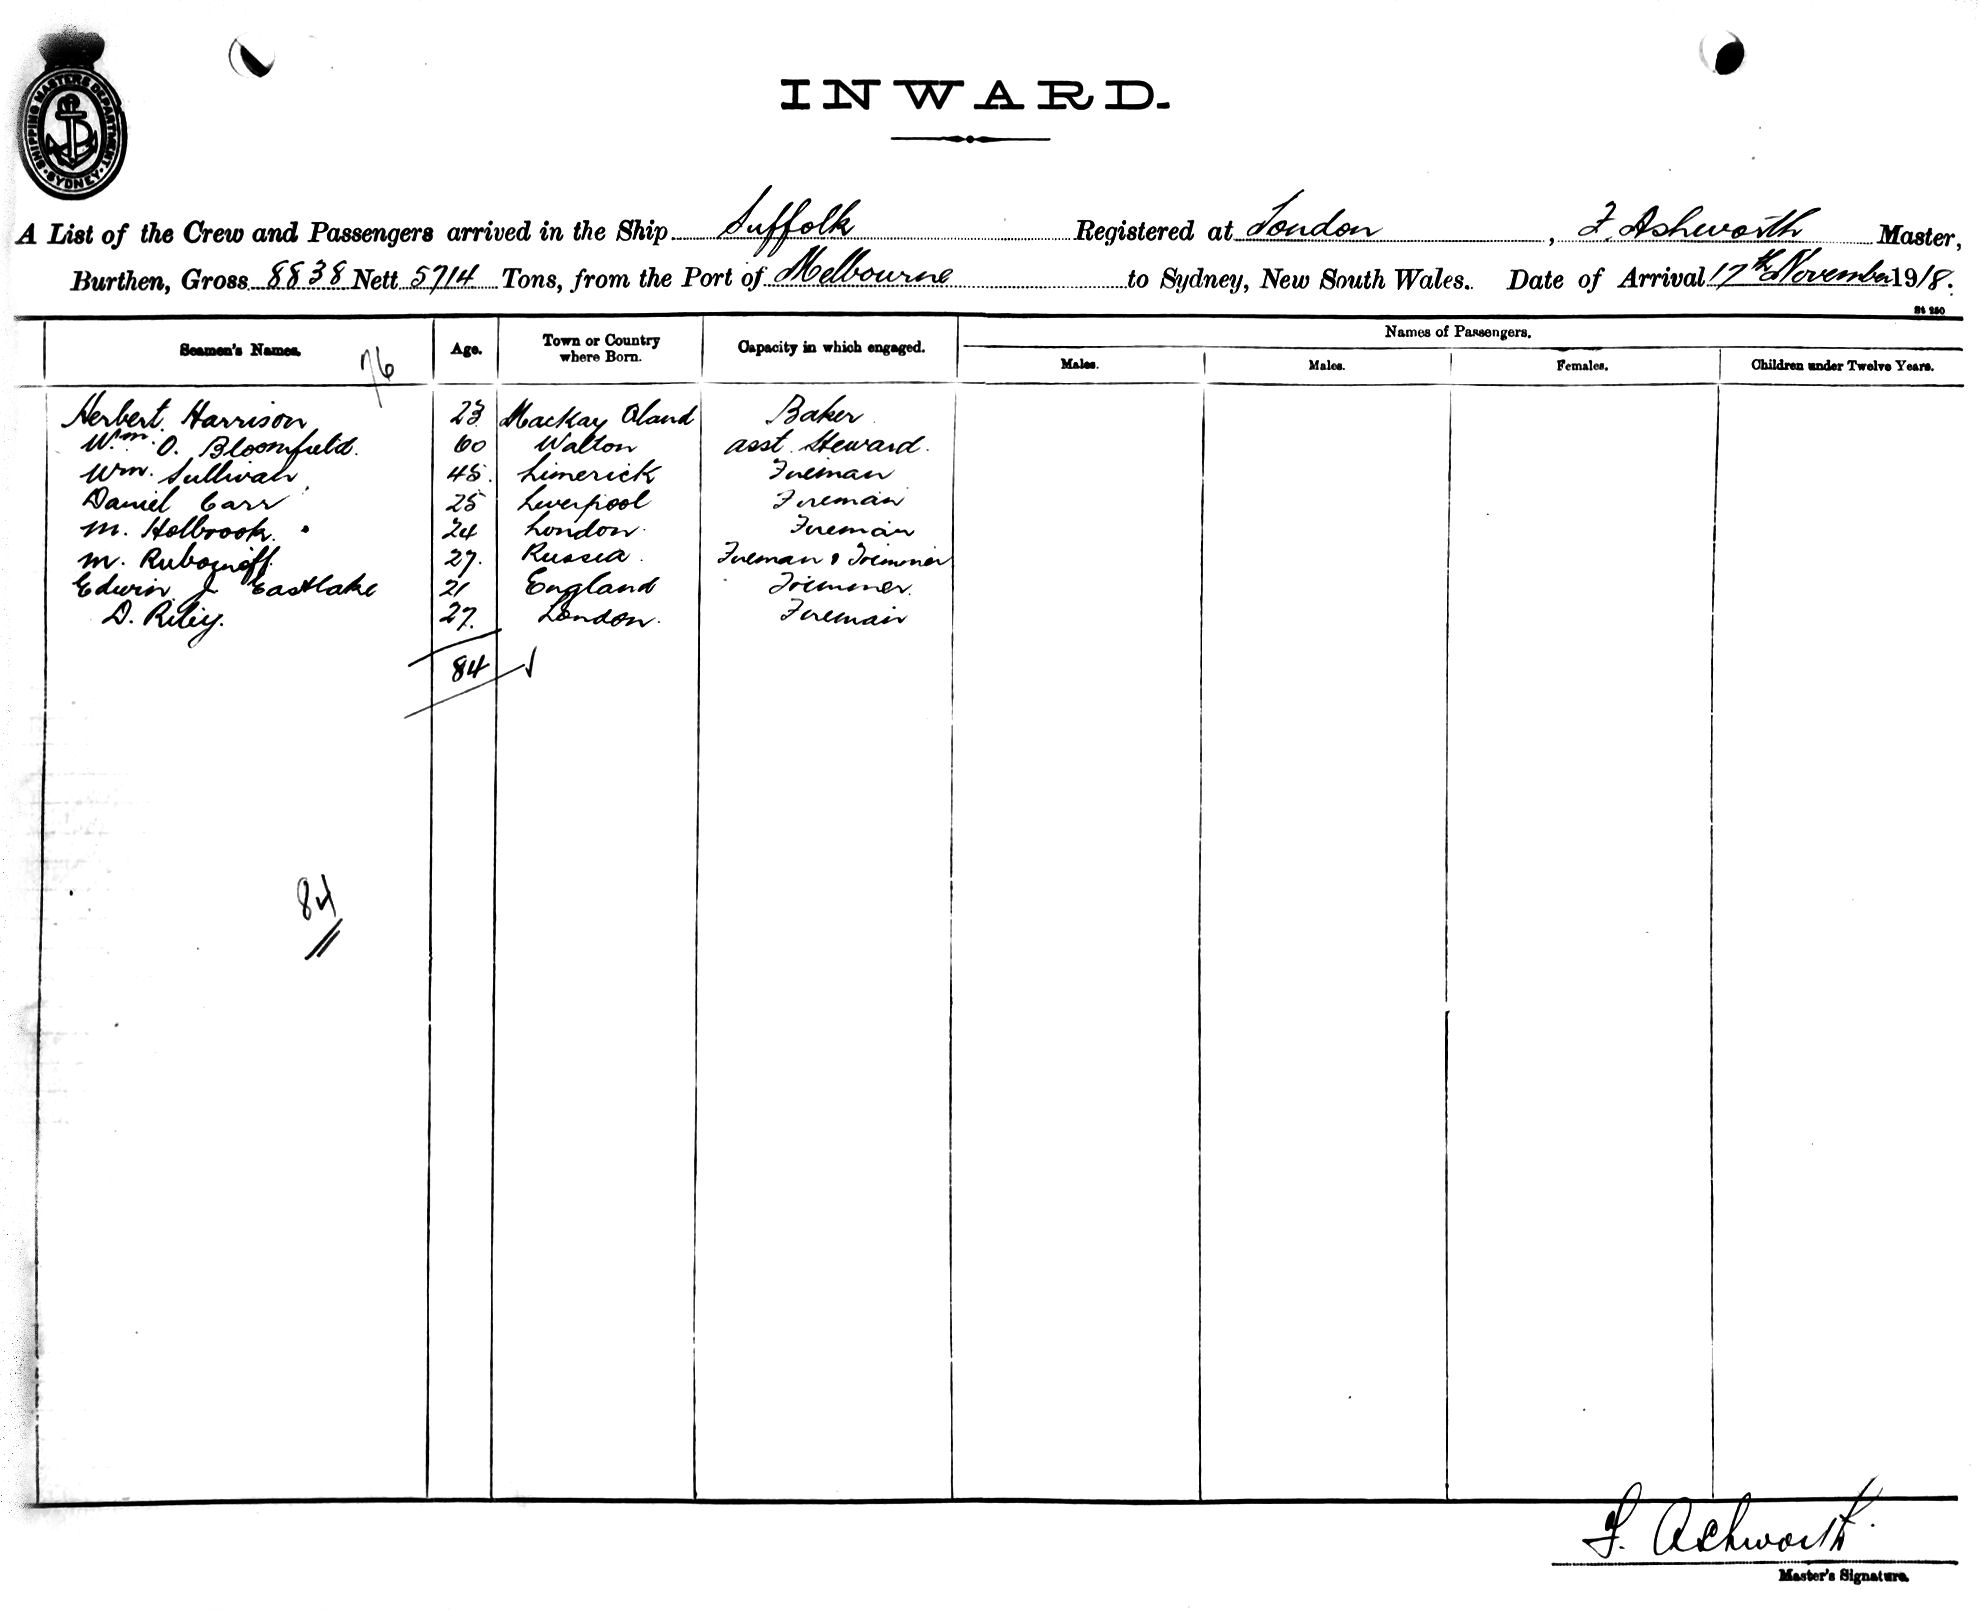 SHIPPING MASTERS DEPARTMENT SYDNEY
INWARD.
A List of the Crew and Passengers arrived in the Ship Suffolk Registered at London, F. Ashworth Master,
Burthen, Gross 8838 Nett 5714 Tons, from the Port of Melbourne to Sydney, New South Wales. Date of Arrival 17th November 1918.
St 250
Seamen's Names. 76 Age. Town or Country where Born. Capacity in which engaged. Names of Passengers.
Males. Males. Females. Children under Twelve Years.
Herbert Harrison 23 Mackay Qland Baker
Wm. O. Bloomfield. 60 Walton asst. Steward.
Wm. Sullivan 45. Limerick Fireman
Daniel Carr 25 Liverpool Fireman
M. Holbrook. 24 London. Fireman
M. 27. Russia. Fireman & Trimmer
Edwin J Eastlake 21 England Trimmer.
D. Riley. 27. London. Fireman
84
84
F. Ashworth.
Master's Signature.